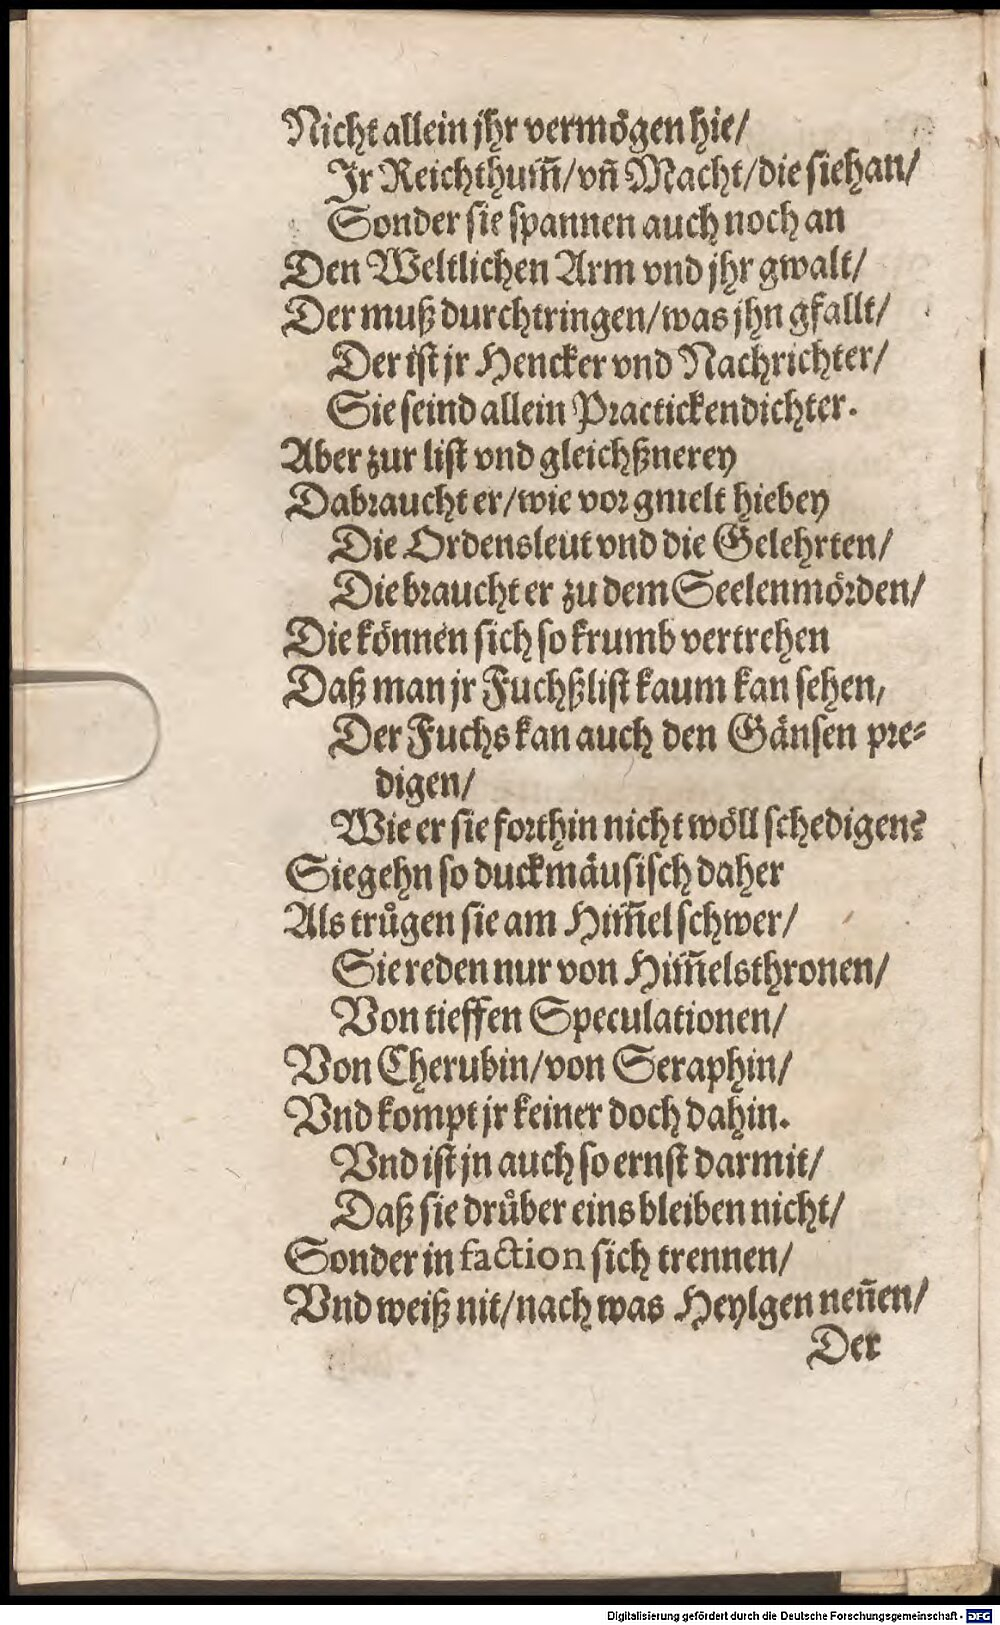 Nicht allein jhr vermögen hie/
Jr Reichthum̃/vñ Macht/die sie han/
Sonder sie spannen auch noch an
Den Weltlichen Arm vnd jhr gwalt/
Der muß durchtringen/was jhn gfallt/
Der ist jr Hencker vnd Nachrichter/
Sie seind allein Practickendichter.
Aber zur list vnd gleichßnerey
Da braucht er/wie vor gmelt hiebey
Die Ordensleut vnd die Gelehrten/
Die braucht er zu dem Seelenmörden/
Die können sich so krumb vertrehen
Daß man jr Fuchßlist kaum kan sehen,
Der Fuchs kan auch den Gänsen pre⸗
digen/
Wie er sie forthin nicht wöll schedigen?
Sie gehn so duckmäusisch daher
Als trůgen sie am Him̃el schwer/
Sie reden nur von Him̃elsthronen/
Von tieffen Speculationen/
Von Cherubin/von Seraphin/
Vnd kompt jr keiner doch dahin.
Vnd ist jn auch so ernst darmit/
Daß sie drůber eins bleiben nicht/
Sonder in faction sich trennen/
Vnd weiß nit/nach was Heylgen neñen/
Der
Digitalisierung gefördert durch die Deutsche Forschungsgemeinschaft - DFG